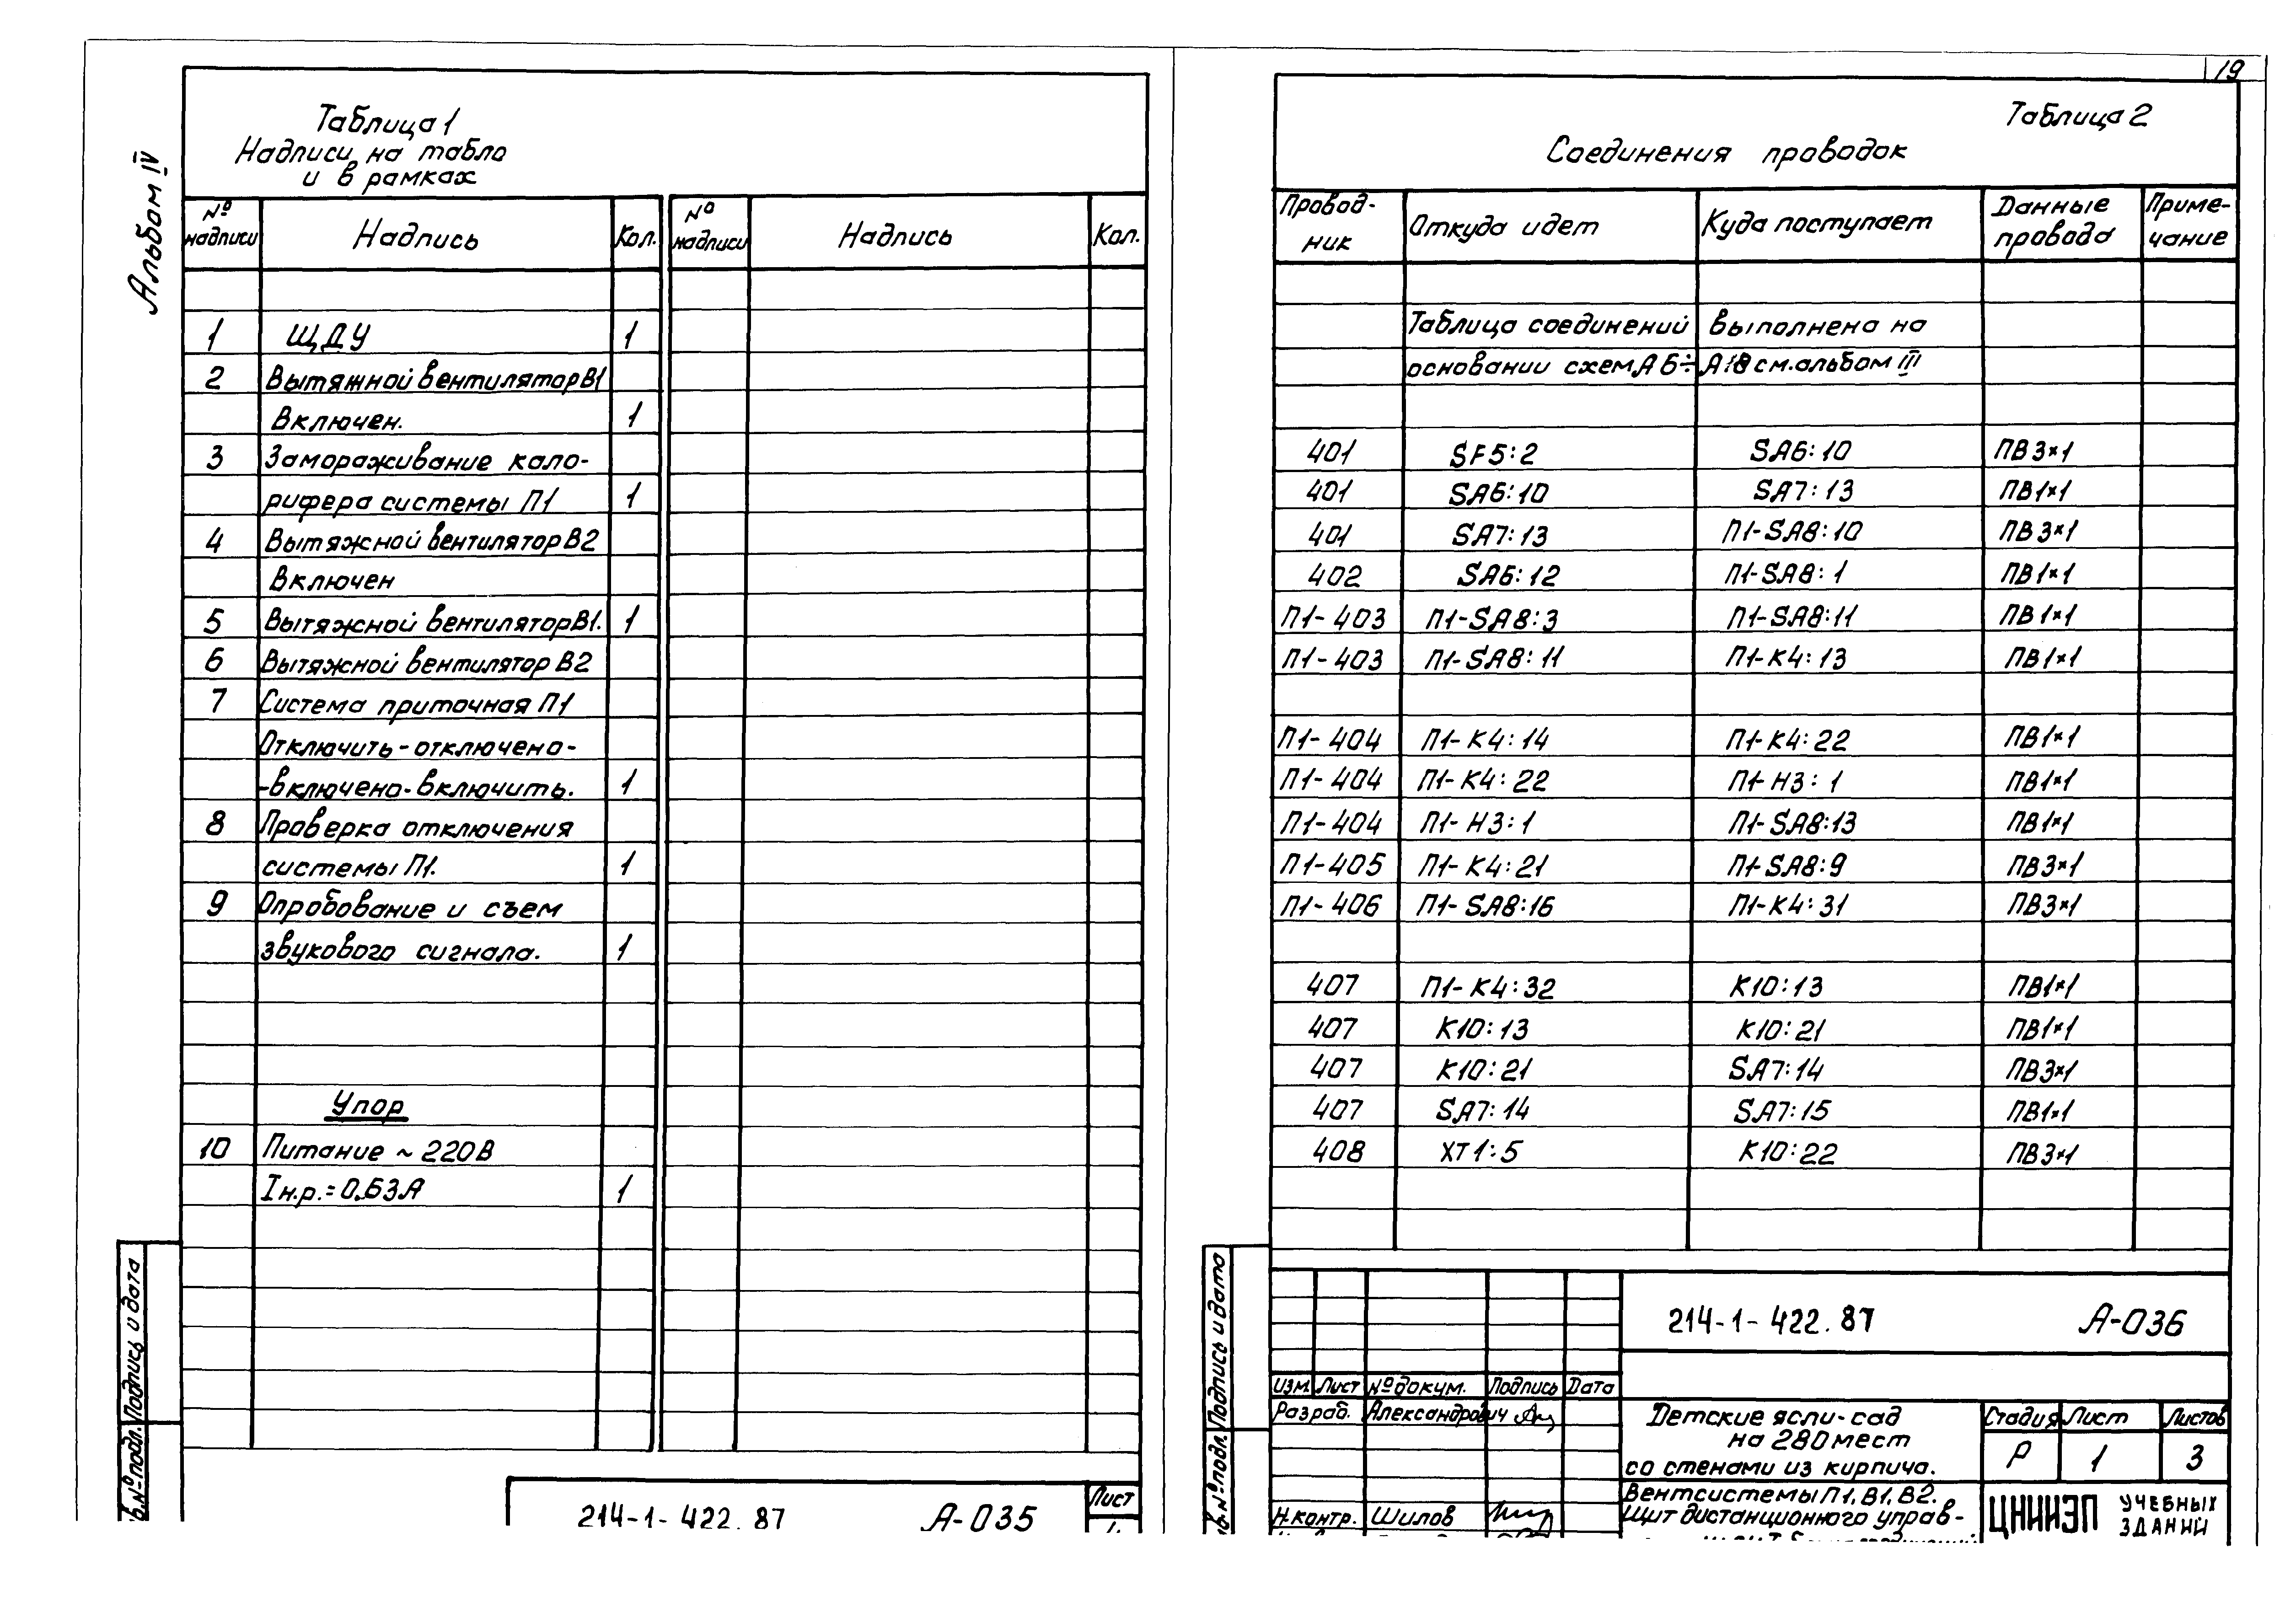 19
Альбом IV
Таблица 1
Надписи на табло
и в рамках
№ надписи Надпись Кол. № надписи Надпись Кол.
1 ЩДУ 1
2 Вытяжной вентилятор В1
Включен. 1
3 Замораживание кало-
рифера системы П1 1
4 Вытяжной вентилятор В2
Включен
5 Вытяжной вентилятор В1. 1
6 Вытяжной вентилятор В2
7 Система приточная П1
Отключить-отключено-
-включено-включить. 1
8 Проверка отключения
системы П1. 1
9 Опробование и съем
звукового сигнала. 1
Упор
10 Питание ~ 220В
Iн.р.=0,63А 1
Подпись и дата
в.№ подл.
214-1-422.87 А-035 Лист
Таблица 2
Соединения проводок
Провод-
ник Откуда идет Куда поступает Данные
провода Приме-
чание
Таблица соединений выполнена на
основании схем А6÷А18 см.альбом III
401 SF5:2 SA6:10 ПВ3×1
401 SA6:10 SA7:13 ПВ1×1
401 SA7:13 П1-SA8:10 ПВ3×1
402 SA6:12 П1-SA8:1 ПВ1×1
П1-403 П1-SA8:3 П1-SA8:11 ПВ1×1
П1-403 П1-SA8:11 П1-К4:13 ПВ1×1
П1-404 П1-К4:14 П1-К4:22 ПВ1×1
П1-404 П1-К4:22 П1-Н3:1 ПВ1×1
П1-404 П1-Н3:1 П1-SA8:13 ПВ1×1
П1-405 П1-К4:21 П1-SA8:9 ПВ3×1
П1-406 П1-SA8:16 П1-К4:31 ПВ3×1
407 П1-К4:32 К10:13 ПВ1×1
407 К10:13 К10:21 ПВ1×1
407 К10:21 SA7:14 ПВ3×1
407 SA7:14 SA7:15 ПВ1×1
408 ХТ1:5 К10:22 ПВ3×1
Подпись и дата
в.№ подл.
214-1-422.87 А-036
Изм. Лист № докум. Подпись Дата
Разраб. Александрович
Детские ясли-сад
на 280 мест
со стенами из кирпича.
Стадия Лист Листов
Р 1 3
Н.контр. Шилов
Вентсистемы П1, В1, В2.
Щит дистанционного управ-
ЦНИИЭП УЧЕБНЫХ
ЗДАНИЙ